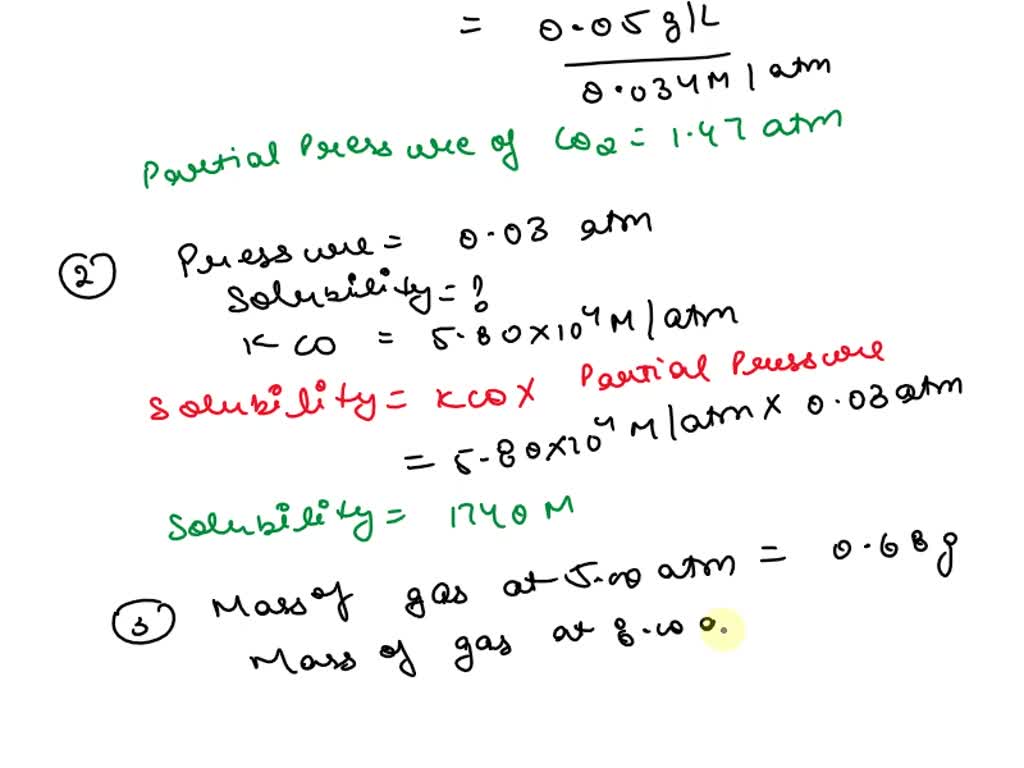 = 0.05 g/L
0.034 M/atm
Partial Pressure of CO2 = 1.47 atm
2 Pressure = 0.03 atm
Solubility = ?
K CO = 5.80×10⁴ M/atm
Solubility = KCO × Partial Pressure
= 5.80×10⁴ M/atm × 0.03 atm
Solubility = 1740 M
3 Mass of gas at 5.00 atm = 0.68 g
Mass of gas at 8.00